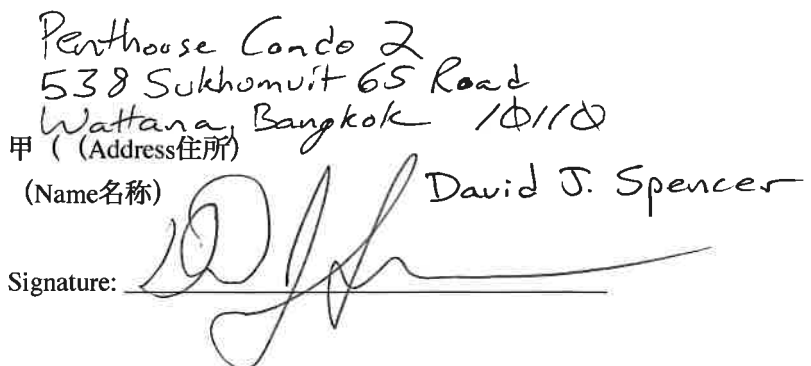 Penthouse Condo 2
538 Sukhumvit 65 Road
Wattana, Bangkok 10110
甲 ( (Address住所)
(Name名称) David J. Spencer
Signature: